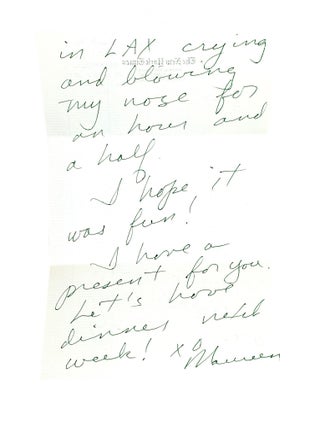 in LAX crying
The New York Times
and blowing
my nose for
an hour and
a half.
I hope it
was fun!
I have a
present for you.
Let's have
dinner next
week! xo
Maureen